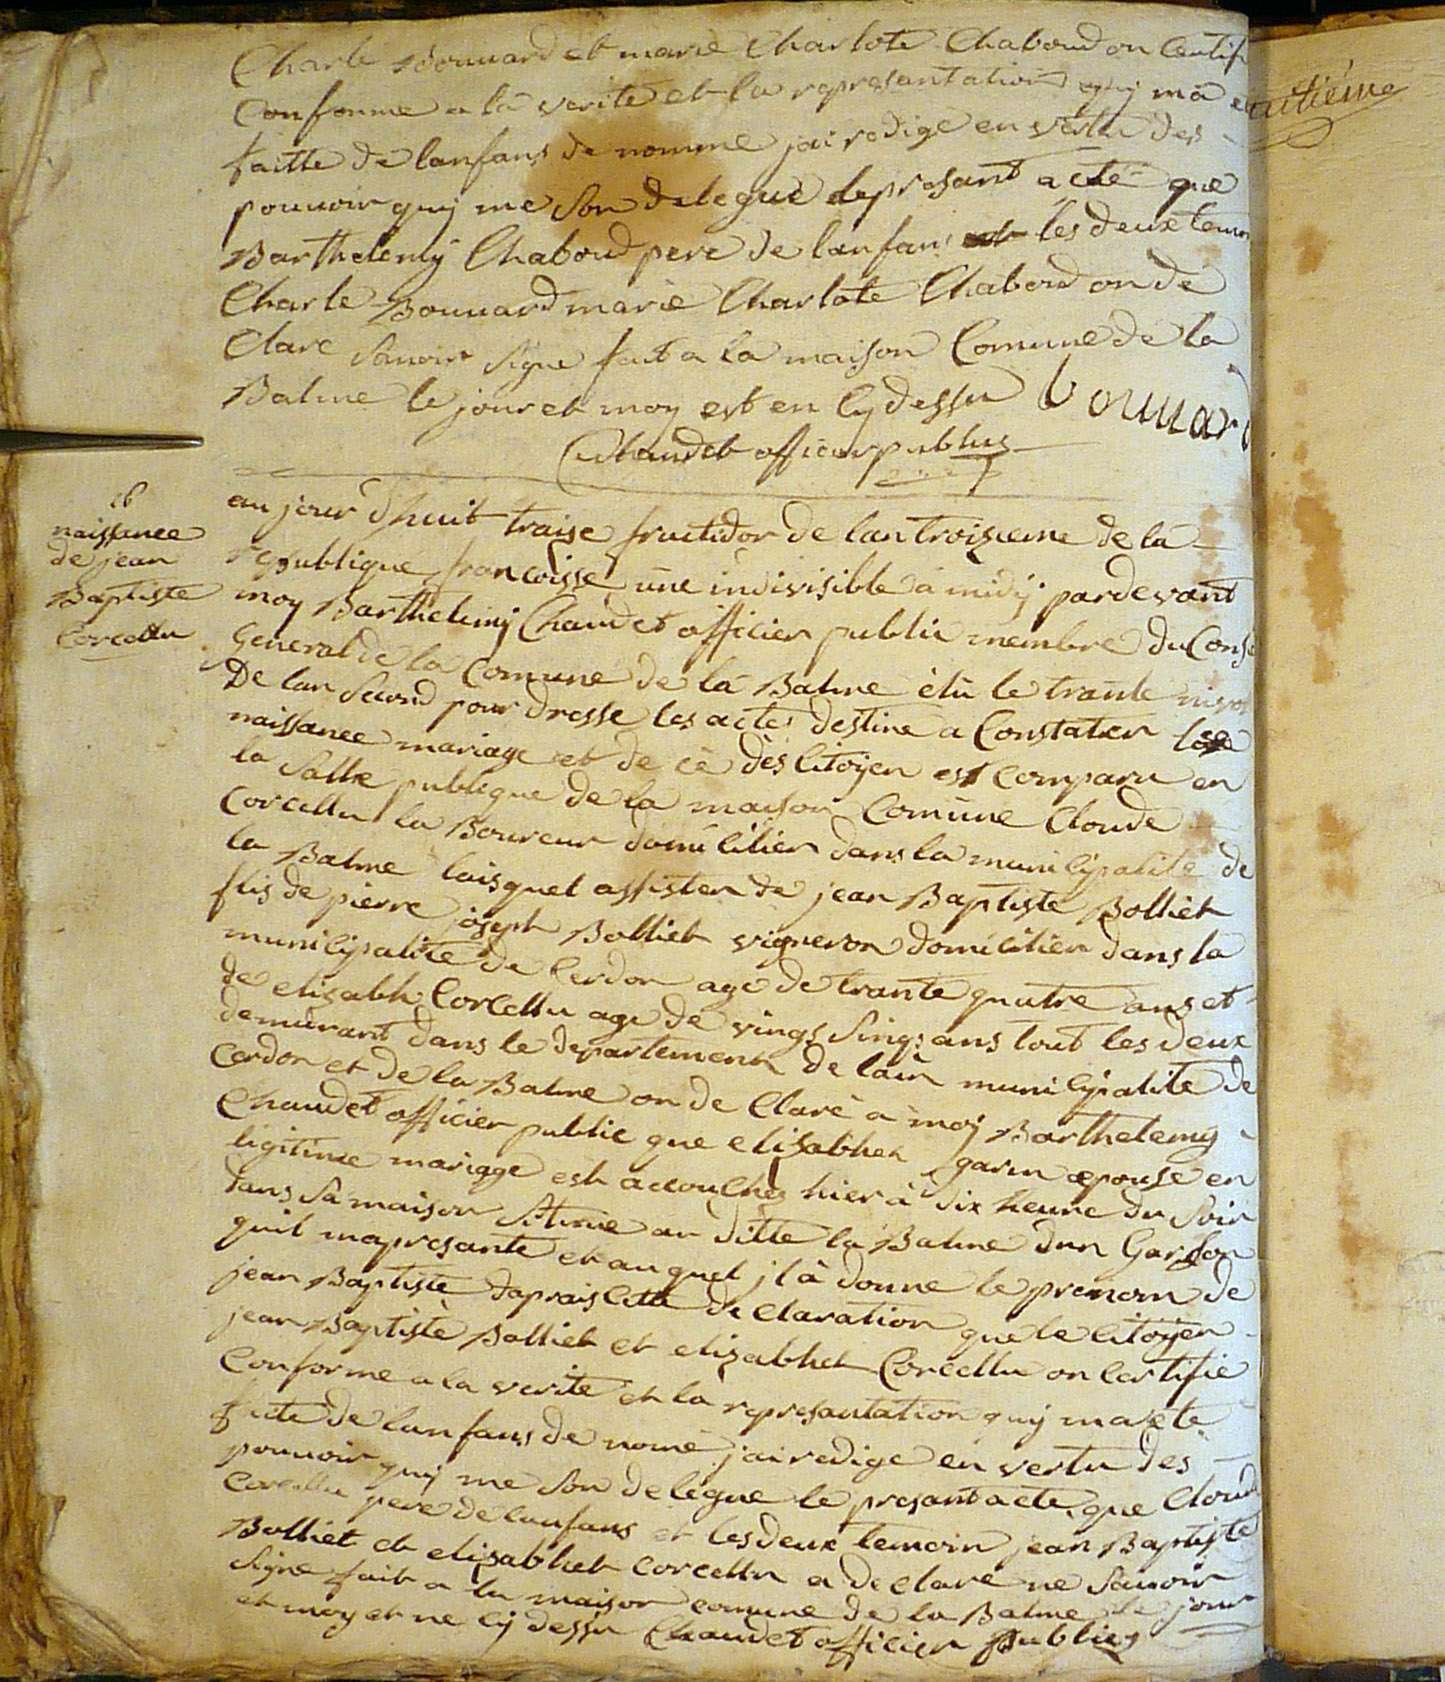 Charle Bouuard et marie Charlote Chaboud on Certifi
Conforme a la verite et la represantation quj ma e
faitte de lanfans de nomme jai redige en vertu des
pouuoir quj me son delegué le presant acte que
Barthelemÿ Chaboud pere de lanfans les deux temoi
Charle Bouuard marie Charlote Chaboud on de
Clare sauoir signe fait a la maison Comune de la
Balme le jour et moy est en Cy dessu bouuard
Chaudet officier publics
26
naissance
de jean
Baptiste
Corcellu
au jour dhuit traise fructidor de lan troizieme de la
republique francoisse une indivisible a midÿ pardevant
moy Barthelemÿ Chaudet officier public membre du Conse
General de la Comune de la Balme élu le trante nivos
De lan second pour dresse les actes destine a Constater les
naissance mariage et de cé dès Citoÿen est comparu en
la salle publique de la maison Comune Cloude
Corcellu la Boureur domicilier dans la municipalite de
la Balme laisquel assister de jean Baptiste Bolliet
fils de pierre joseph Bolliet vigneron domicilier dans la
municipalite de Cerdon age de trante quatre ans et
de elisabh Corcellu age de vings sinqs ans tout les deux
demurant dans le departement de lain municipalite de
Cerdon et de la Balme on de Claré a moj Barthelemÿ
Chaudet officier public que elisabhet garin epouse en
ligitime mariage est accouchez hier a six heure du soir
dans sa maison situue au ditte la Balme dun Garson
quil mapresante et auquel jl à donne le prenom de
jean Baptiste daprais cette de Claration que le Citoÿen
jean Baptiste Bolliet et elizabhet Corcellu on Certifié
Conforme a la verite et la represantation quj ma ete
faite de lanfans de nomé jai redige en vertu des
pouuoir quj me son delegue le presant acte que Cloude
Corcellu pere de lanfans et les deux temoin jean Baptiste
Bolliet et elizabhet Corcellu a declare ne sauoir
signe fait a la maison comune de la Balme le jour
et moy et ne Cÿ dessu Chaudet officier publics